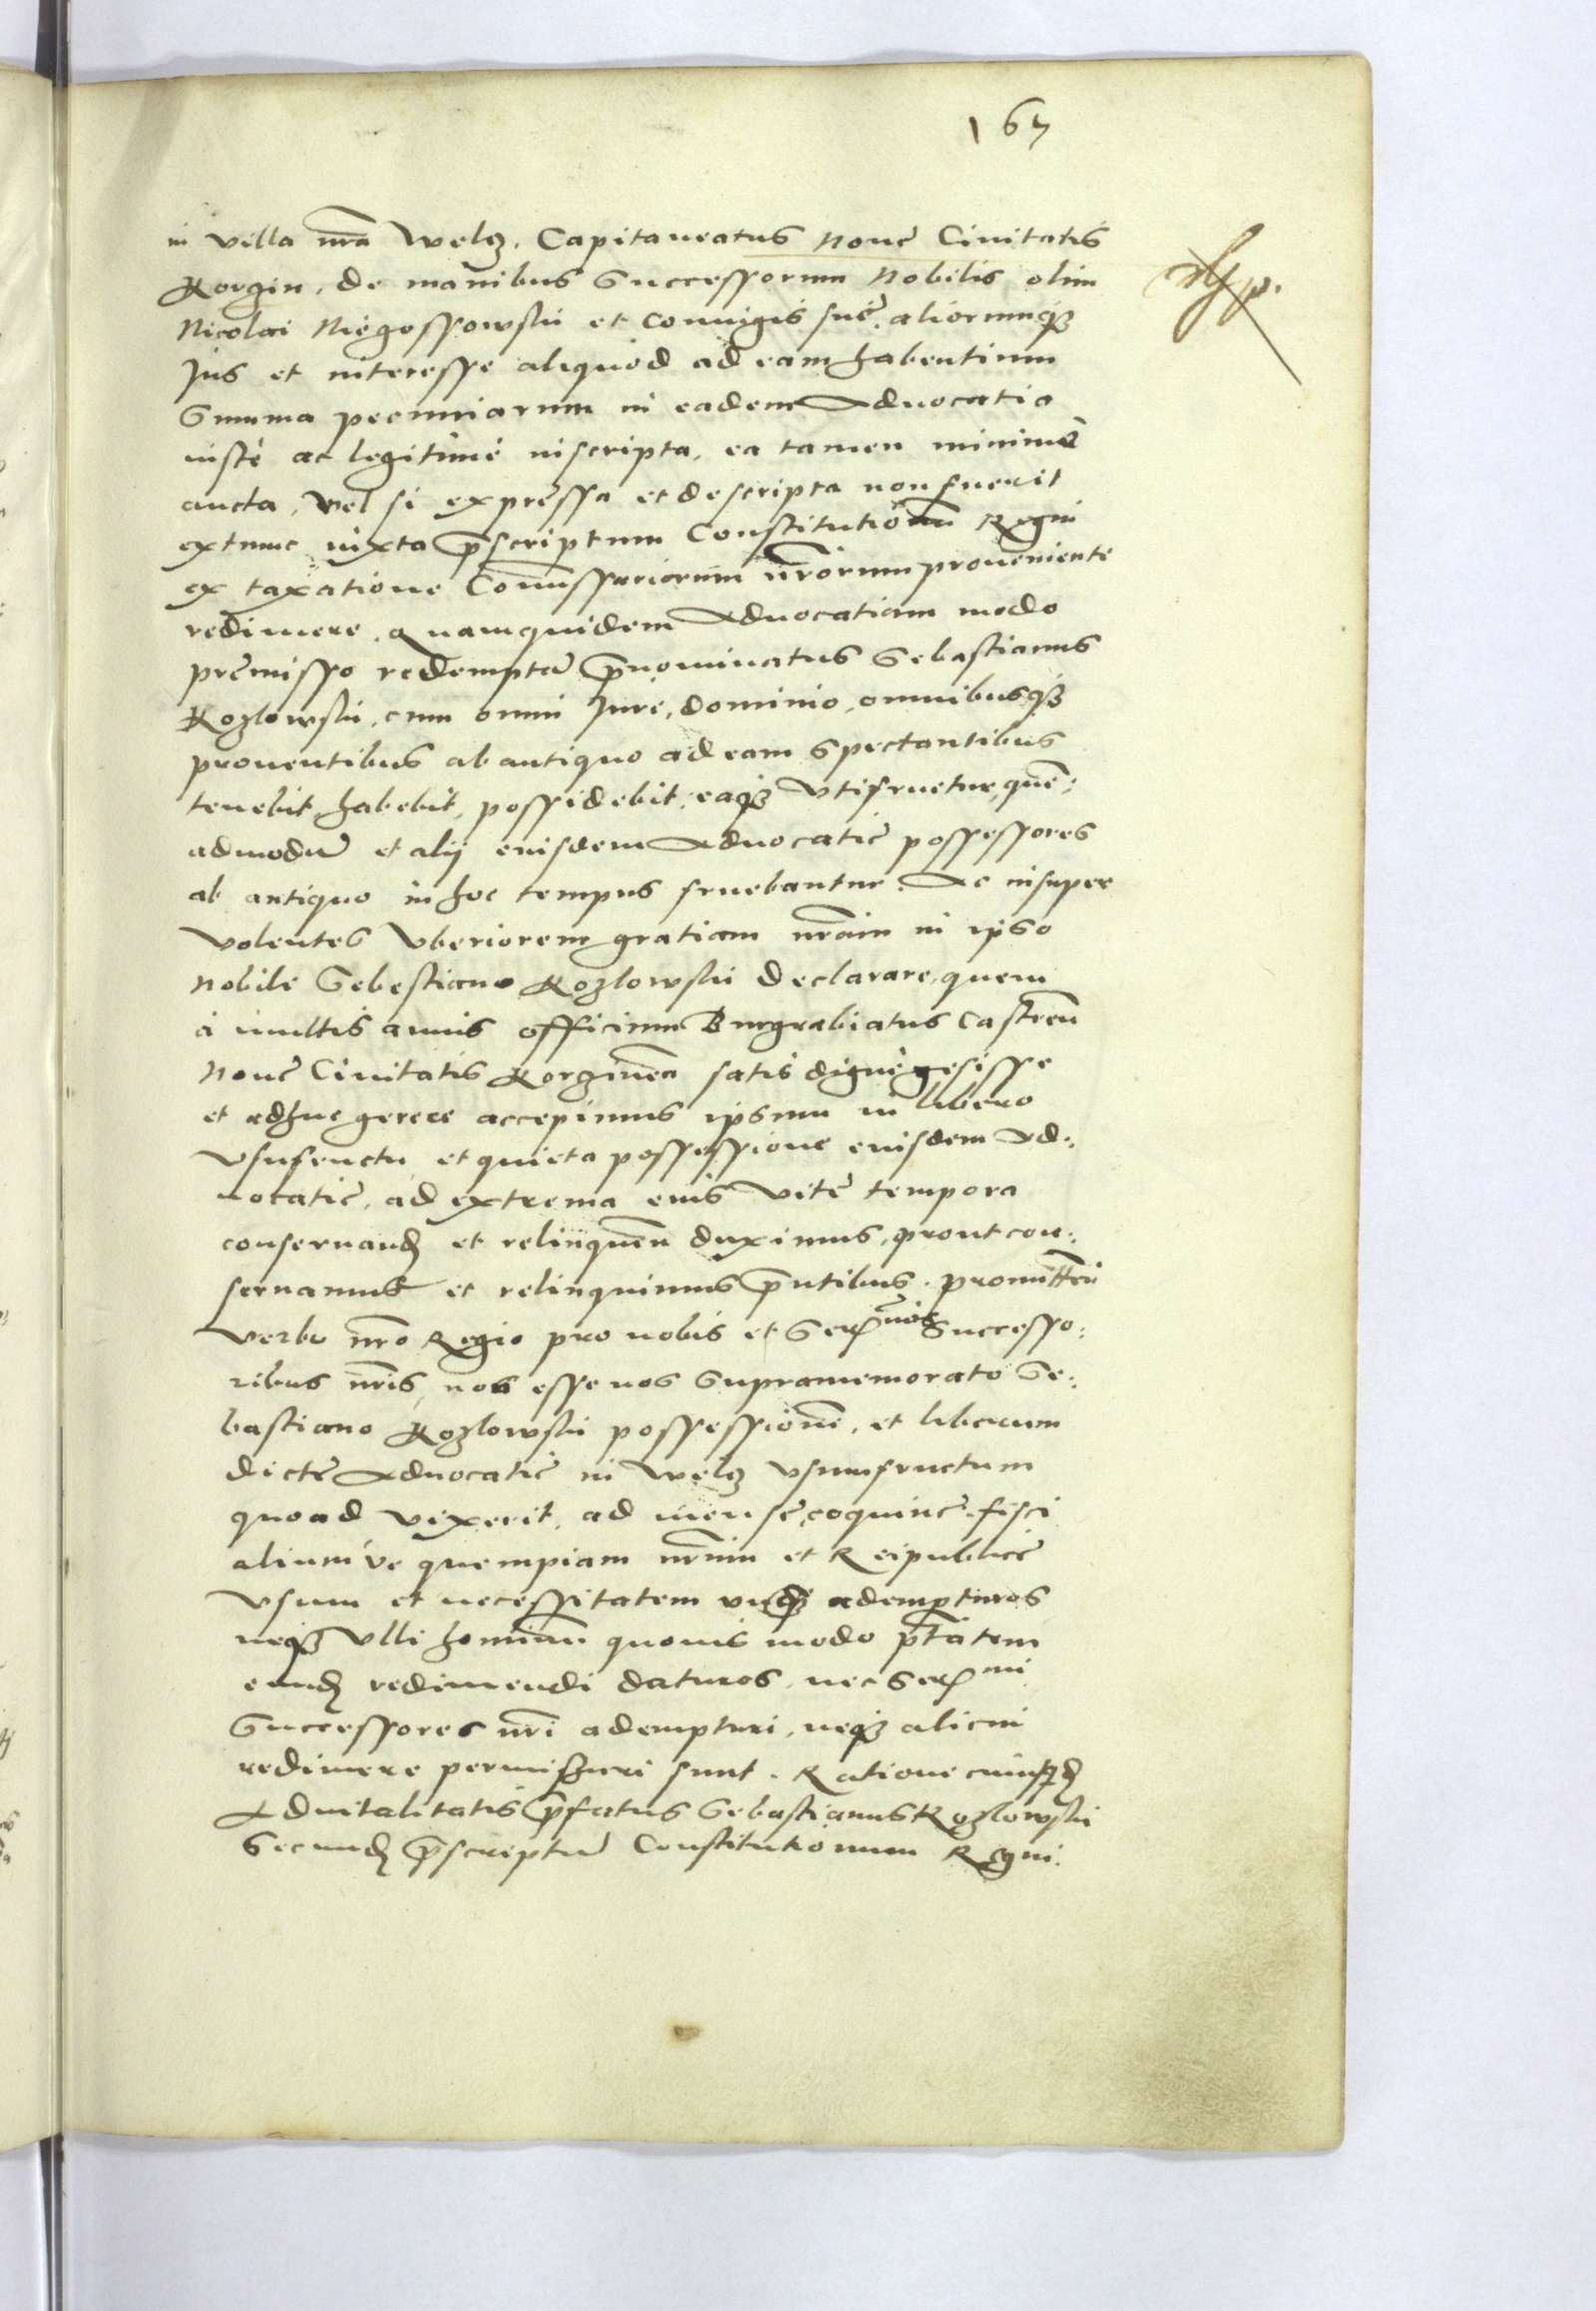 167
in villa nr̃a Welcz, Capitaneatus Nouę Ciuitatis
Korzin, de manibus Successorum Nobilis olim
Nicolai Niegossowski et Coniugis suę, aliorumq3
Jus et interesse aliquod ad eam habentium
Summa pecuniarum in eadem Aduocatia
iustè ac legitimè inscripta, ea tamen minimè
aucta, vel si expressa et descripta non fuerit
extunc iuxta p̃scriptum Constitutionũ Regni
ex taxatione Com̃issariorum nr̃orum proueniente
redimere. Quamquidem Aduocatiam modo
premisso redemptã p̃nominatus Sebastianus
Kozlowski, cum omni Jure, dominio, omnibusq3
prouentibus ab antiquo ad eam spectantibus
tenebit, habebit, possidebit, eaq3 vtifruetur, quẽ:
admodũ et alij eiusdem Aduocatię possessores
ab antiquo in hoc tempus fruebantur. Ac insuper
volentes vberiorem gratiam nr̃am in ipso
Nobile Sebestiano Kozlowski declarare, quem
à multis annis officium Burgrabiatus Castreñ
Nouę Ciuitatis Korzineñ satis dignè gesisse
et adhuc gerere accepimus ipsum in libero
vsufructu et quieta possessione eiusdem Ad:
uocatię, ad extrema eius vitę tempora
conseruand et relinqueñ duximus, prout con:
seruamus et relinquimus p̃ntibus. promitteñ
verbo nr̃o Regio pro nobis et Ser^mis Successo:
ribus nr̃is, nos esse nos supramemorato Se:
bastiano Kozlowski possessionẽ, et liberum
dictę Aduocatię in Welcz vsumfructum
quoad vixerit, ad mensę, coquinę, fisci
aliumúe quempiam nr̃um et Reipublicę
vsum et necessitatem vnq3 adempturos
neq3 vlli hominũ quouis modo p̃tatem
eund redimendi daturos, nec Ser^mi
Successores nr̃i adempturi, neq3 alicui
redimere permissuri sunt. Ratione cuiusqd
Aduitalitatis p̃fatus Sebastianus Kozlowski
secund p̃scriptũ Constitutionum Regni.